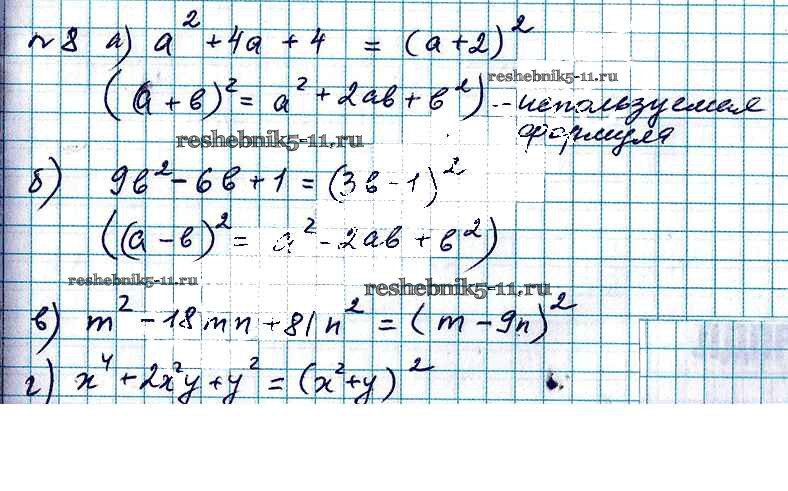 №8 а) a² + 4a + 4 = (a+2)²
reshebnik5-11.ru
((a + в)² = a² + 2aв + в²) -- используемая
формула
reshebnik5-11.ru
б) 9в² - 6в + 1 = (3в - 1)²
((a - в)² = a² - 2aв + в²)
reshebnik5-11.ru
reshebnik5-11.ru
в) m² - 18mn + 81n² = (m - 9n)²
г) x⁴ + 2x²y + y² = (x² + y)²